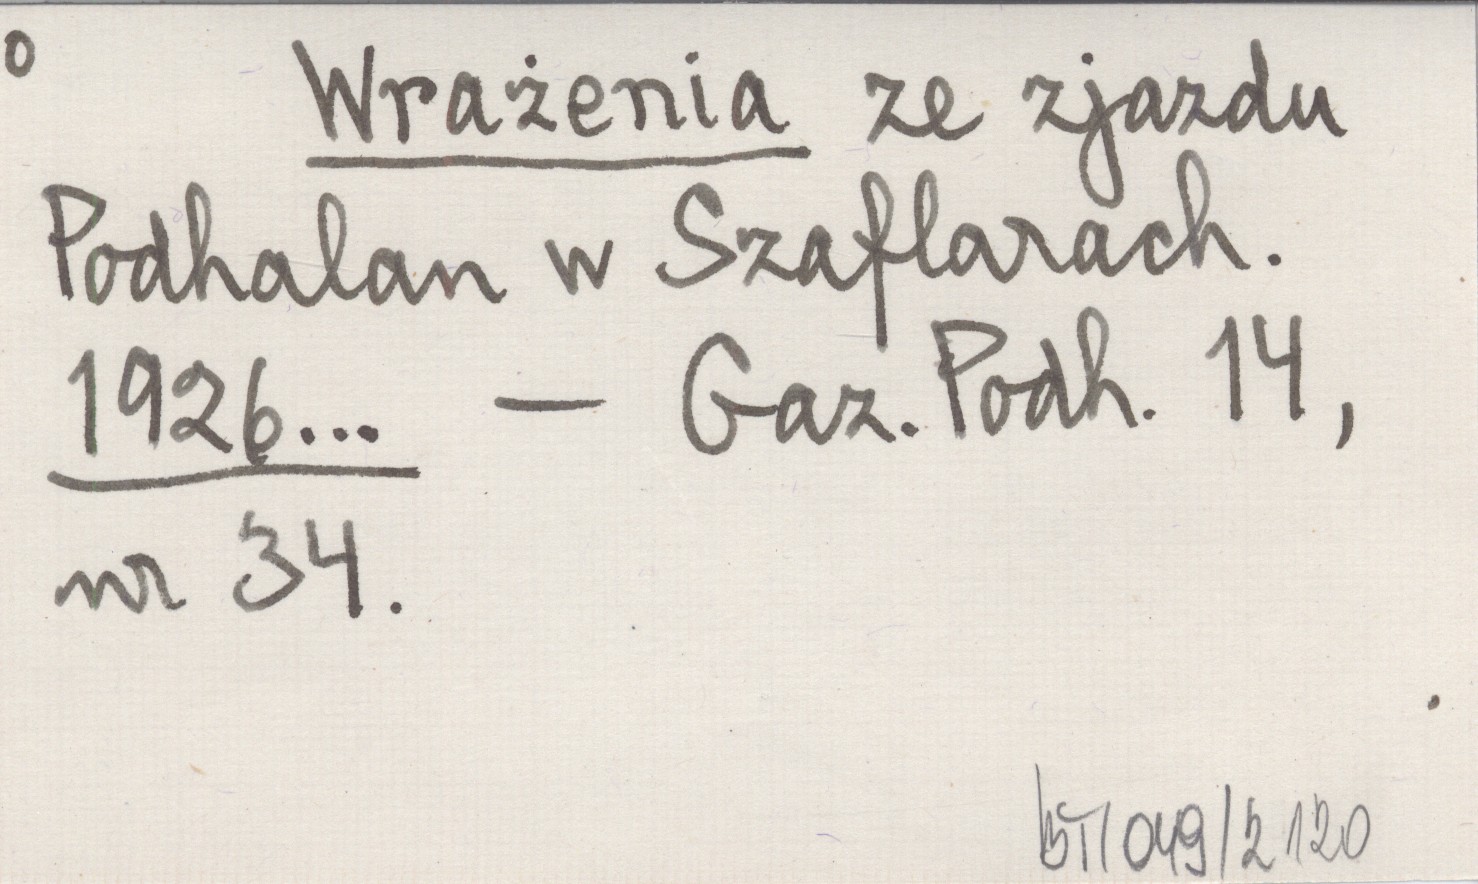 o
Wrażenia ze zjazdu
Podhalan w Szaflarach.
1926... — Gaz. Podh. 14,
nr 34.
BT/049/2120